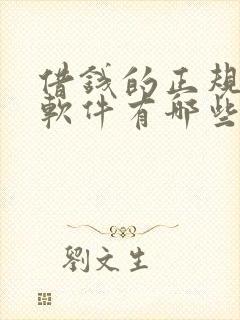 借錢的正規
軟件有哪些
劉文生